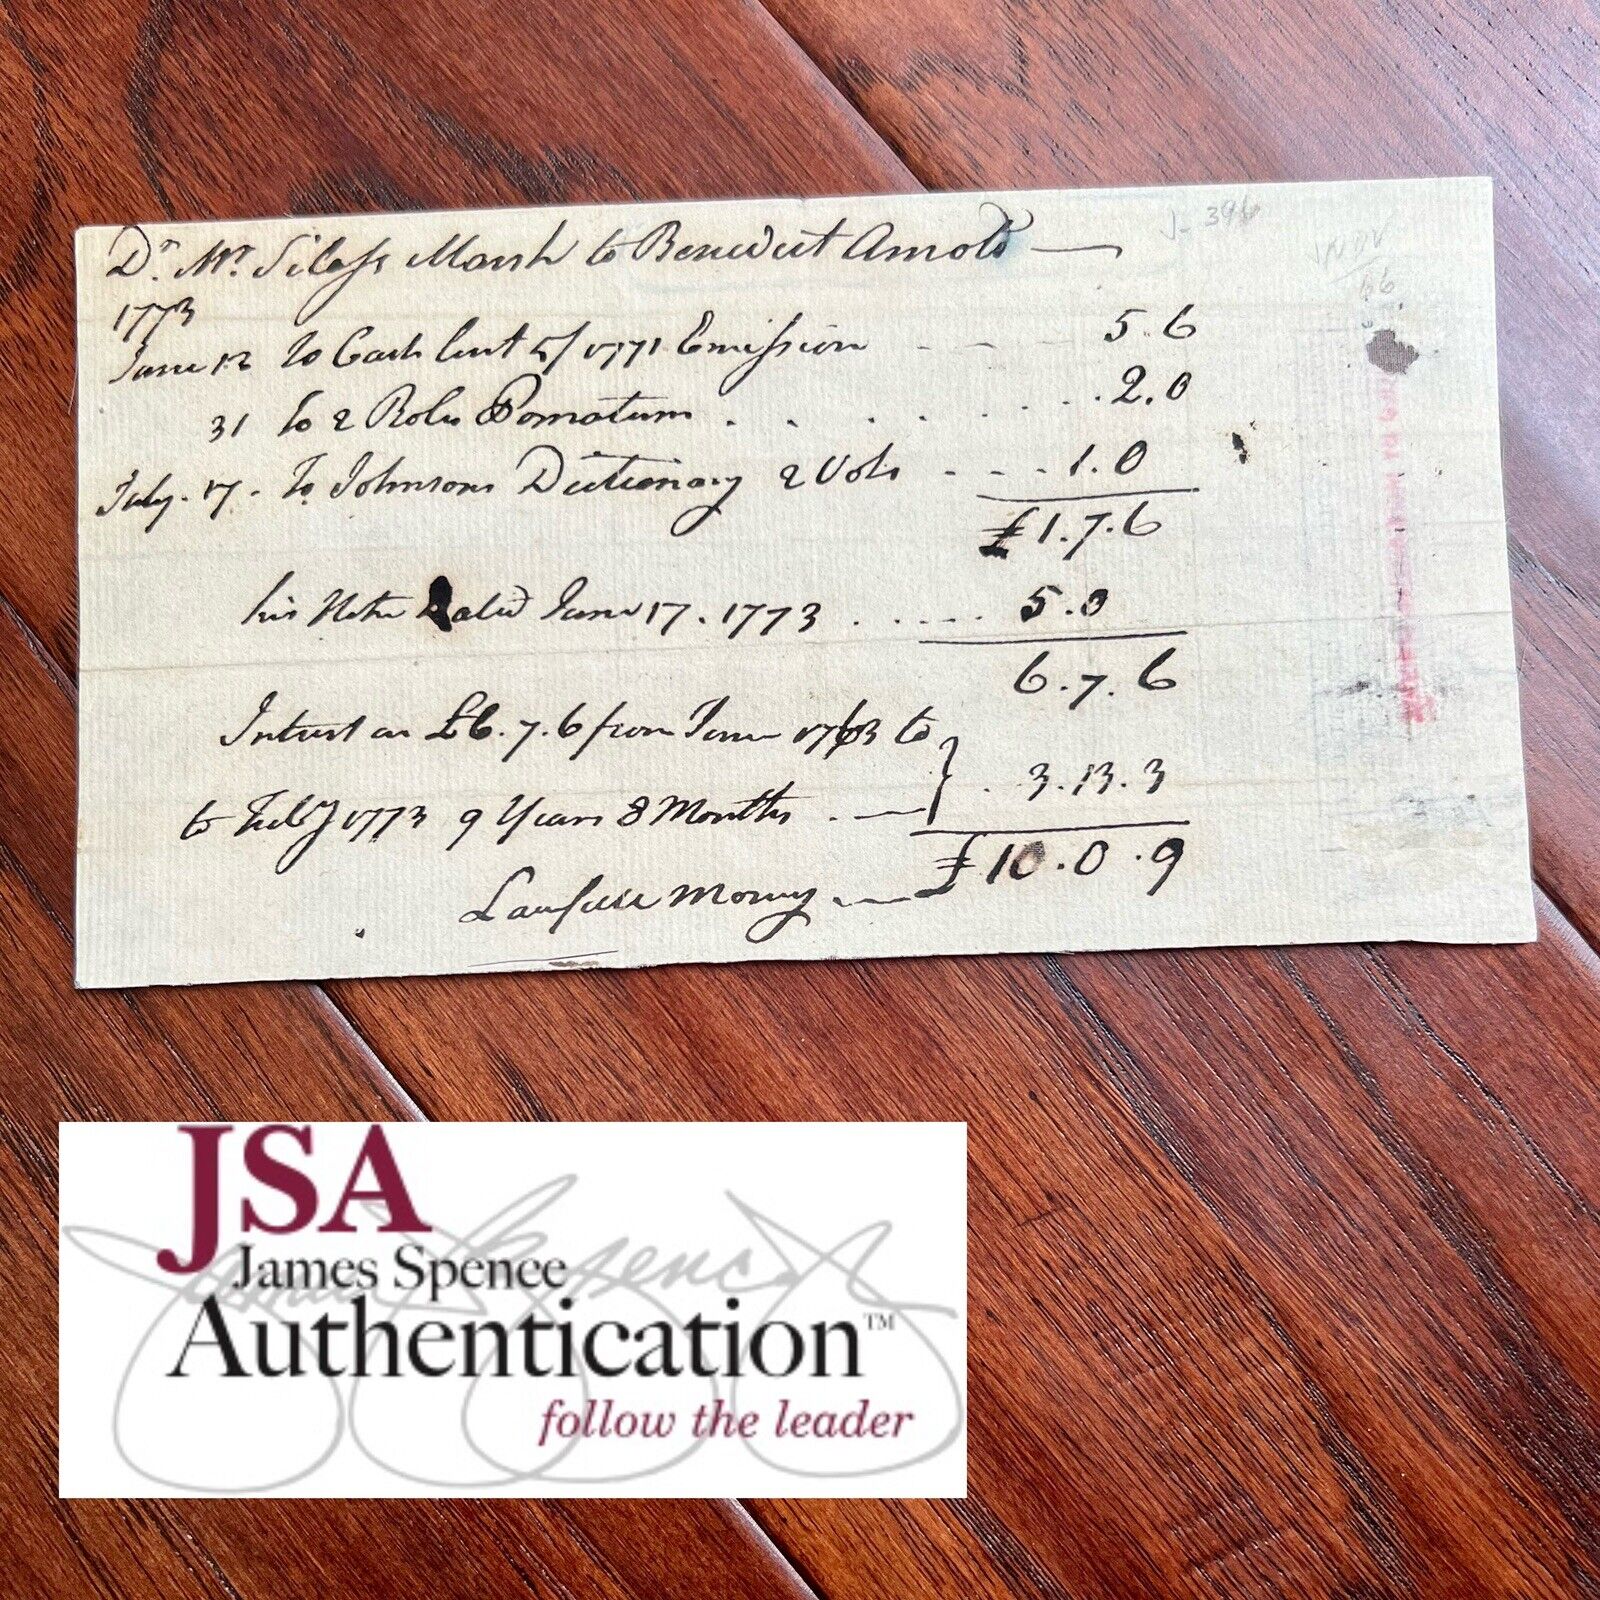 Dr. Mr. Silass Marsh to Benedict Arnold
J- 396
1773
June 12 To Cash lent 5/ 1771 Emission - - - - 5.6
31 to 2 Rolls Pomatum . . . . . . . . 2.0
July. 17. To Johnsons Dictionary 2 Vols - - - . 1.0
£1.7.6
his Note Dated June 17. 1773 . . . . . 5.0
6.7.6
Interest on £6.7.6 from June 1763 to
to Feby 1773 9 Years 8 Months . — } . 3.13.3
Lawfull Money — £10.0.9
JSA
James Spence
Authentication™
follow the leader